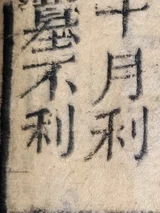 十月利
墓不利